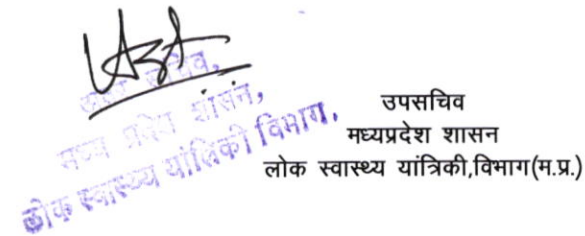 सचिव,
मध्य प्रदेश शासन,
लोक स्वास्थ्य यांत्रिकी विभाग.
उपसचिव
मध्यप्रदेश शासन
लोक स्वास्थ्य यांत्रिकी,विभाग(म.प्र.)